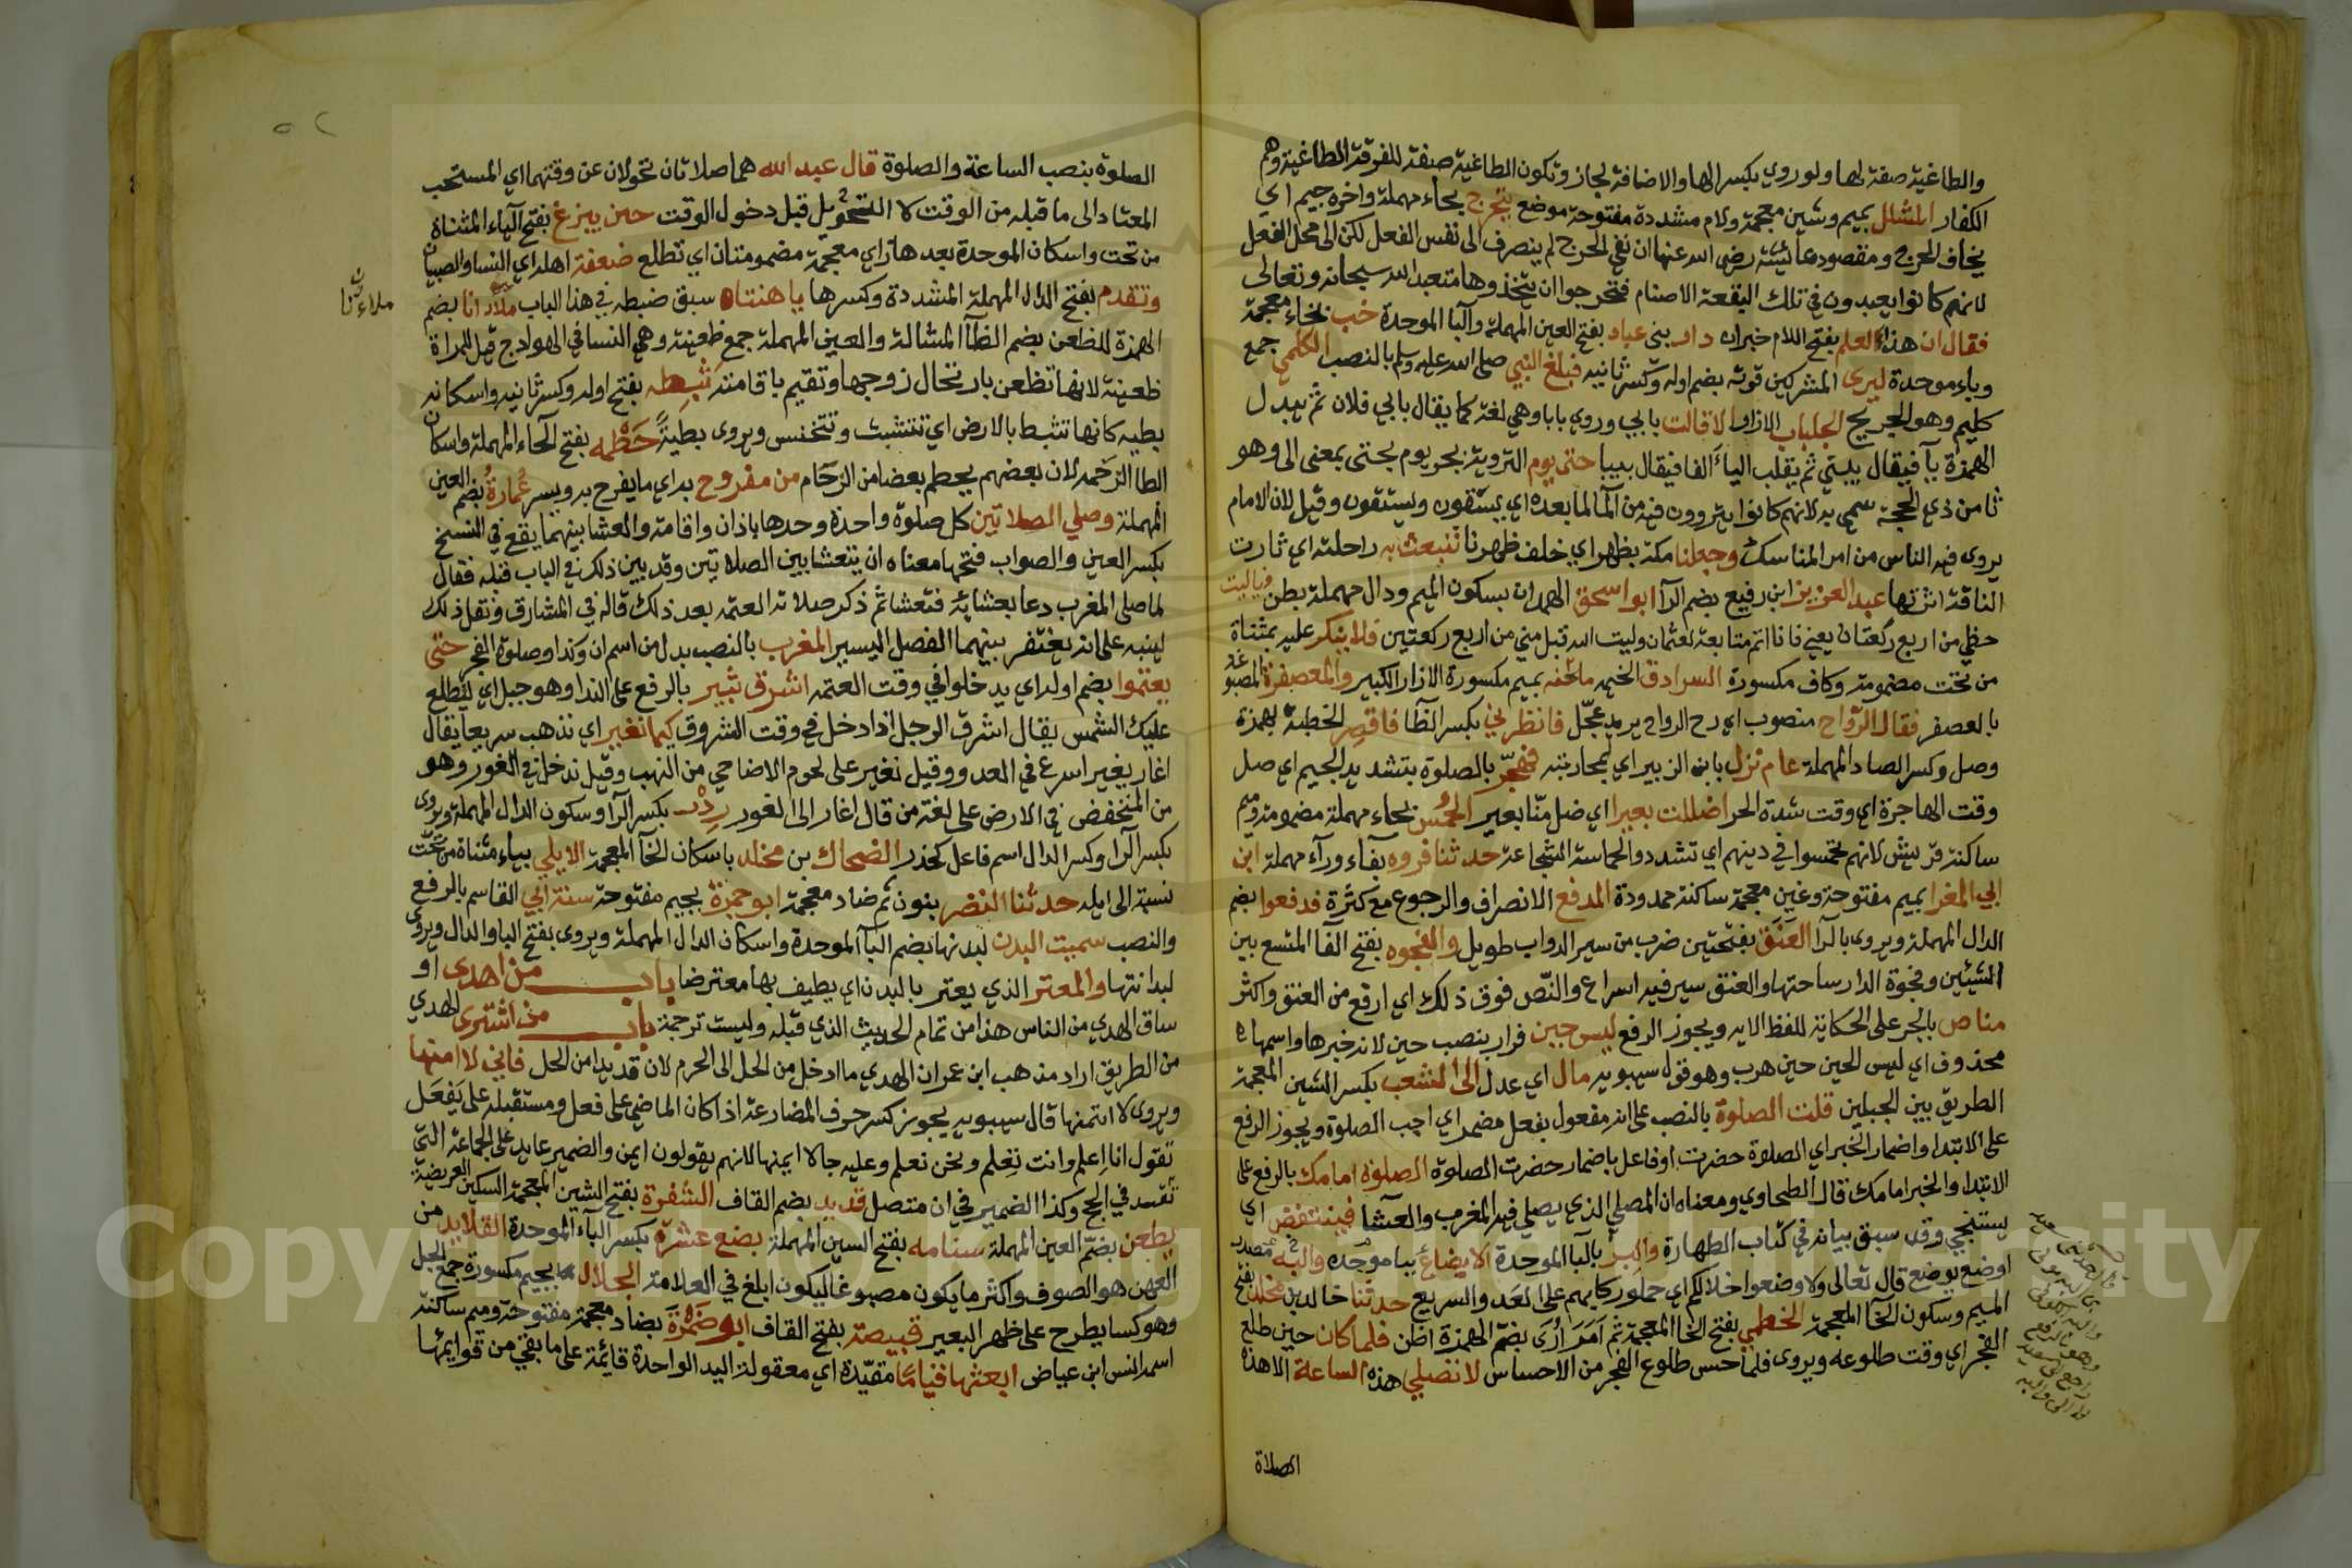 والطاغية صفة لها ولو روي بكسر الها والاضافة لجاز وتكون الطاغية صفة للفرقة الطاغية وهم
الكفار المشلل بميم وشين معجمة ولام مشددة مفتوحة موضع يتحرج بحاء مهملة واخره جيم اي
يخاف الحرج ومقصود عائشة رضي الله عنها ان نفي الحرج لم ينصرف الى نفس الفعل لكن الى محل الفعل
لانهم كانوا يعبدون في تلك البقعة الاصنام فتحرجوا ان يتخذوها متعبد الله سبحانه وتعالى
فقال ان هذا العلم بفتح اللام خبر ان دار بني عباد بفتح العين المهملة والبا الموحدة خب بخاء معجمة
وباء موحدة ليرى المشركين قوته بضم اوله وكسر ثانيه فبلغ النبي صلى الله عليه وسلم بالنصب الكلمي جمع
كليم وهو الجريح الجلباب الازار لا قالت بابي وروي بابا وهي لغة كما يقال بابي فلان ثم يبدل
الهمزة يا فيقال بيبي ثم يقلب الياء الفا فيقال بيبا حتى يوم التروية بجر يوم بحتى بمعنى الى وهو
ثامن ذي الحجة سمي به لانهم كانوا يتروون فيه من الما لما بعده اي يستقون ويستقون وقيل لان الامام
يروي فيه الناس من امر المناسك وجعلنا مكة بظهر اي خلف ظهرنا تنبعث به راحلته اي ثارت
الناقة اثرتها عبد العزيز ابن رفيع بضم الرا ابو اسحق الهمدان بسكون الميم ودال مهملة بطن فياليت
حظي من اربع ركعتان يعني فانا اتم متابعة لعثمان وليت الله قبل مني من اربع ركعتين فلا ينكر عليه بمثناة
من تحت مضمومة وكاف مكسورة السرادق الخيمه ملحفه بميم مكسورة الازار الكبير والمعصفرة المصبوغة
بالعصفر فقال الرواح منصوب اي رح الرواح يريد عجّل فانظرني بكسر الظا فاقصر الخطبة بهمزة
وصل وكسر الصاد المهملة عام نزل بابن الزبير اي لمحاربته فهجّر بالصلوة بتشديد الجيم اي صل
وقت الهاجرة اي وقت شدة الحر اضللت بعيرا اي ضل منّا بعير الحُمْس بحاء مهملة مضمومة وميم
ساكنة قريش لانهم تحمسوا في دينهم اي تشددوا الحماسة الشجاعة حدثنا فروه بفآء ورآء مهملة ابن
ابي المغرا بميم مفتوحة وغين معجمة ساكنة ممدودة المدفع الانصراف والرجوع مع كثرة فدفعوا بضم
الدال المهملة ويروى بالرا العَنَق بفتحتين ضرب من سير الدواب طويل والفجوه بفتح الفا المتسع بين
الشيئين وفجوة الدار ساحتها والعنق سير فيه اسراع والنّص فوق ذلك اي ارفع من العنق واكثر
مناص بالجر على الحكاية للفظ الايه ويجوز الرفع ليس حين فرار بنصب حين لانه خبرها واسمها
محذوف اي ليس الحين حين هرب وهو قول سيبويه مال اي عدل الى الشعب بكسر الشين المعجمة
الطريق بين الجبلين قلت الصلوة بالنصب على انه مفعول بفعل مضمر اي احب الصلوة ويجوز الرفع
على الابتدا واضمار الخبر اي الصلوة حضرت اوفاعل باضمار حضرت الصلوة الصلوة امامك بالرفع على
الابتدا والخبر امامك قال الطحاوي ومعناه ان المصلى الذي يصلي فيه المغرب والعشا فينتفض اي
يستنجي وقد سبق بيانه في كتاب الطهارة والبرّ بالبا الموحدة الايضاع بيا موحده والبه مصدر
اوضع يوضع قال تعالى ولاوضعوا خلالكم اي حملوا ركايبهم على العَد والسريع حدثنا خالد بن مخلد بفتح
الميم وسكون الخا المعجمة الخطمي بفتح الخا المعجمة ثم اَمَرَ اُرَى بضم الهمزة اظن فلما كان حين طلع
الفجر اي وقت طلوعه ويروى فلما احس طلوع الفجر من الاحساس لا نصلي هذه الساعة الا هذه
الصلاة
الصلوة بنصب الساعة والصلوة قال عبد الله هما صلاتان تحولان عن وقتهما اي المستحب
المعتاد الى ما قبله من الوقت لا التحويل قبل دخول الوقت حين يبزغ بفتح الياء المثناة
من تحت واسكان الموحدة بعدها زاي معجمة مضمومتان اي تطلع ضعفة اهله اي النسا والصبيان
وتقدم بفتح الدال المهملة المشددة وكسرها يا هنتاه سبق ضبطه في هذا الباب ملاء انا بضم
الهمزة للظعن بضم الظا المشالة والعين المهملة جمع ظعينة وهي النسا في الهوادج قيل للمراة
ظعينة لانها تظعن بارتحال زوجها وتقيم باقامته ثَبِطه بفتح اوله وكسر ثانيه واسكانه
بطيه كانها تثبط بالارض اي تتشبث وتتخنس ويروى بطيئةً حَطْمه بفتح الحاء المهملة واسكان
الطا الزحمه لان بعضهم يحطم بعضا من الزحام من مفروح به اي ما يفرح به ويسر عُمارةُ بضم العين
المهملة وصلي الصلاتين كل صلوة واحدة وحدها باذان واقامة والعشا بينهما يقع في النسخ
بكسر العين والصواب فتحها معناه ان يتعشا بين الصلاتين وقد بين ذلك في الباب قبله فقال
لما صلى المغرب دعا بعشايه فتعشا ثم ذكر صلاته العتمه بعد ذلك قاله في المشارق وتقل ذلك
لينبه على انه يغتفر بينهما الفصل اليسير المغرب بالنصب بدل من اسم ان وكذا وصلوة الفجر حتى
يعتموا بضم اوله اي يدخلوا في وقت العتمه اشرق ثبير بالرفع على الندا وهو جبل اي لتطلع
عليك الشمس يقال اشرق الرجل اذا دخل في وقت الشروق كيما نغير اي نذهب سريعا يقال
اغار يغير اسرع في العدو وقيل نغير على لحوم الاضاحي من النهب وقيل ندخل في الغور وهو
من المنخفض في الارض على لغة من قال اغار الى الغور رِدْف بكسر الرا وسكون الدال المهملة ويروى
بكسر الرا وكسر الدال اسم فاعل كحذر الضحاك بن مخلد باسكان الخا المعجمة الايلي بياء مثناة من تحت
نسبة الى ايله حدثنا النضر بنون ثم ضاد معجمة ابو جمرة بجيم مفتوحة سنة ابي القاسم بالرفع
والنصب سميت البدن لبدنها بضم البآ الموحدة واسكان الدال المهملة ويروى بفتح البا والدال ويروى
لبدانتها والمعتر الذي يعتر بالبدن اي يطيف بها معترضا باب من اهدى او
ساق الهدي من الناس هذا من تمام الحديث الذي قبله وليست ترجمة باب من اشترى الهدي
من الطريق اراد مذهب ابن عمر ان الهدي ما ادخل من الحل الى الحرم لان قديدا من الحل فاني لا امنها
ويروى لا ايتمنها قال سيبويه يجوز كسر حرف المضارعة اذا كان الماضي على فعل ومستقبله على يَفعَل
تقول انا اِعلم وانت تِعلم ونحن نعلم وعليه جا لا ايمنها لانهم يقولون ايمن والضمير عايد على الجماعة التي
تفسد في الحج وكذا الضمير في ان متصل قديد بضم القاف الشفرة بفتح الشين المعجمة السكين العريضة
يطعن بضمّ العين المهملة سنامه بفتح السين المهملة بضع عشرة بكسر البآء الموحدة القلايد من
العهن هو الصوف واكثر ما يكون مصبوغا ليكون ابلغ في العلامة الجلال بجيم مكسورة جمع الجل
وهو كسا يطرح على ظهر البعير قبيصة بفتح القاف ابو ضَمْرَة بضاد معجمة مفتوحة وميم ساكنة
اسمه انس ابن عياض ابعثها قياما مقيّدة اي معقولة اليد الواحدة قايمة على ما بقي من قوايمها
ملاءن
Copyright © King Saud University